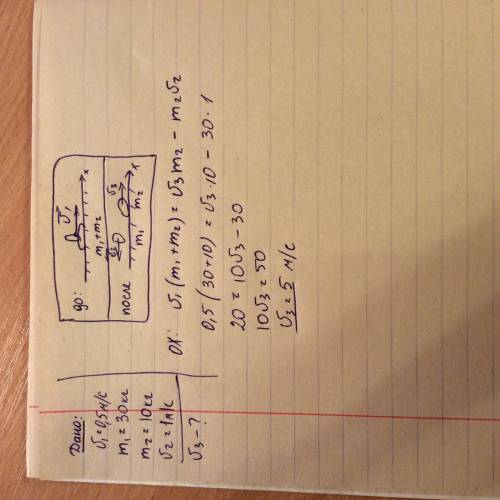 Дано:
υ₁=0,5м/с
m₁=30кг
m₂=10кг
υ₂=1м/с
υ₃-?
до:
υ₁
m₁+m₂
x
после
υ₂
υ₃
m₁
m₂
x
OX: υ₁(m₁+m₂)=υ₃m₂-m₂υ₂
0,5(30+10)=υ₃·10-30·1
20=10υ₃-30
10υ₃=50
υ₃=5 м/с